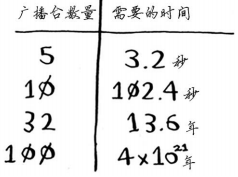 广播台数量 需要的时间
5 3.2 秒
10 102.4 秒
32 13.6 年
100 4×10²¹ 年